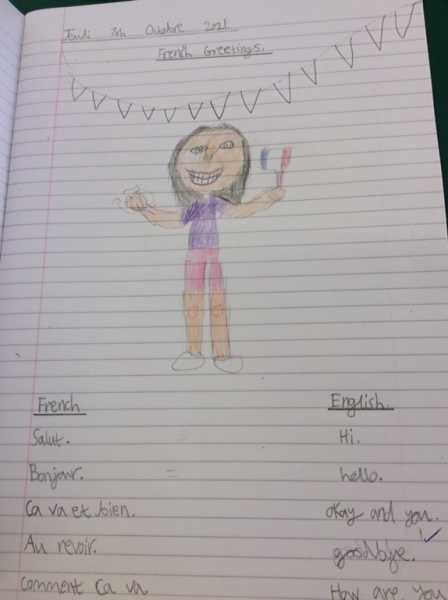 Jeudi 7th Octobre 2021
French Greetings.
French English.
Salut. Hi.
Bonjour. = hello.
Ca va et bien. okay and you.
Au revoir. goodbye.
Comment Ca va How are you